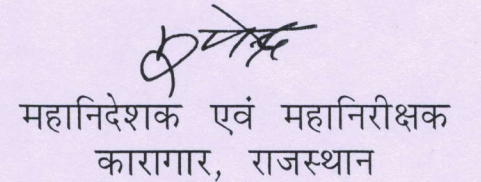 महानिदेशक एवं महानिरीक्षक
कारागार, राजस्थान